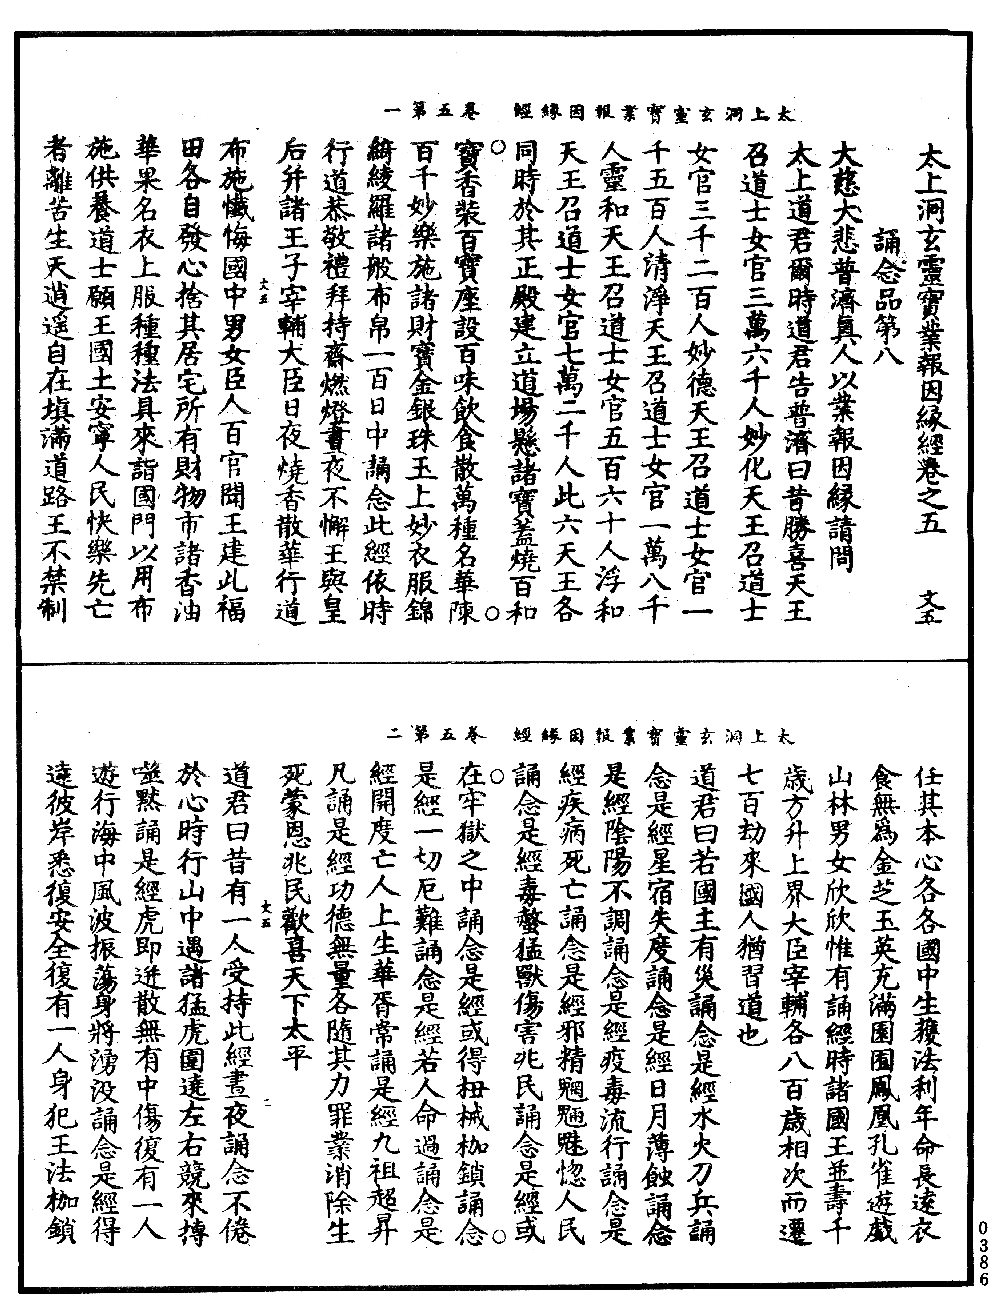 太上洞玄靈寶業報因緣經卷之五　文五
誦念品第八
大慈大悲普濟真人以業報因緣請問
太上道君爾時道君告普濟曰昔勝喜天王
召道士女官三萬六千人妙化天王召道士
太上洞玄靈寶業報因緣經　卷五第一
女官三千二百人妙德天王召道士女官一
千五百人清淨天王召道士女官一萬八千
人靈和天王召道士女官五百六十人浮和
天王召道士女官七萬二千人此六天王各
同時於其正殿建立道場懸諸寶蓋燒百和
寶香裝百寶座設百味飲食散萬種名華陳
百千妙樂施諸財寶金銀珠玉上妙衣服錦
綺綾羅諸般布帛一百日中誦念此經依時
行道恭敬禮拜持齋燃燈晝夜不懈王與皇
后并諸王子宰輔大臣日夜燒香散華行道
文五
布施懺悔國中男女臣人百官聞王建此福
田各自發心捨其居宅所有財物市諸香油
華果名衣上服種種法具來詣國門以用布
施供養道士願王國土安寧人民快樂先亡
者離苦生天逍遙自在填滿道路王不禁制
任其本心各各國中生獲法利年命長遠衣
食無為金芝玉英充滿園囿鳳凰孔雀遊戲
山林男女欣欣惟有誦經時諸國王並壽千
歲方升上界大臣宰輔各八百歲相次而遷
七百劫來國人猶習道也
太上洞玄靈寶業報因緣經　卷五第二
道君曰若國主有災誦念是經水火刀兵誦
念是經星宿失度誦念是經日月薄蝕誦念
是經陰陽不調誦念是經疫毒流行誦念是
經疾病死亡誦念是經邪精魍魎魅惚人民
誦念是經毒螫猛獸傷害兆民誦念是經或
在牢獄之中誦念是經或得杻械枷鎖誦念
是經一切厄難誦念是經若人命過誦念是
經開度亡人上生華胥常誦是經九祖超昇
凡誦是經功德無量各隨其力罪業消除生
死蒙恩兆民歡喜天下太平
文五　二
道君曰昔有一人受持此經晝夜誦念不倦
於心時行山中遇諸猛虎圍遶左右競來搏
噬默誦是經虎即迸散無有中傷復有一人
遊行海中風波振蕩身將湧沒誦念是經得
達彼岸悉復安全復有一人身犯王法枷鎖
0386